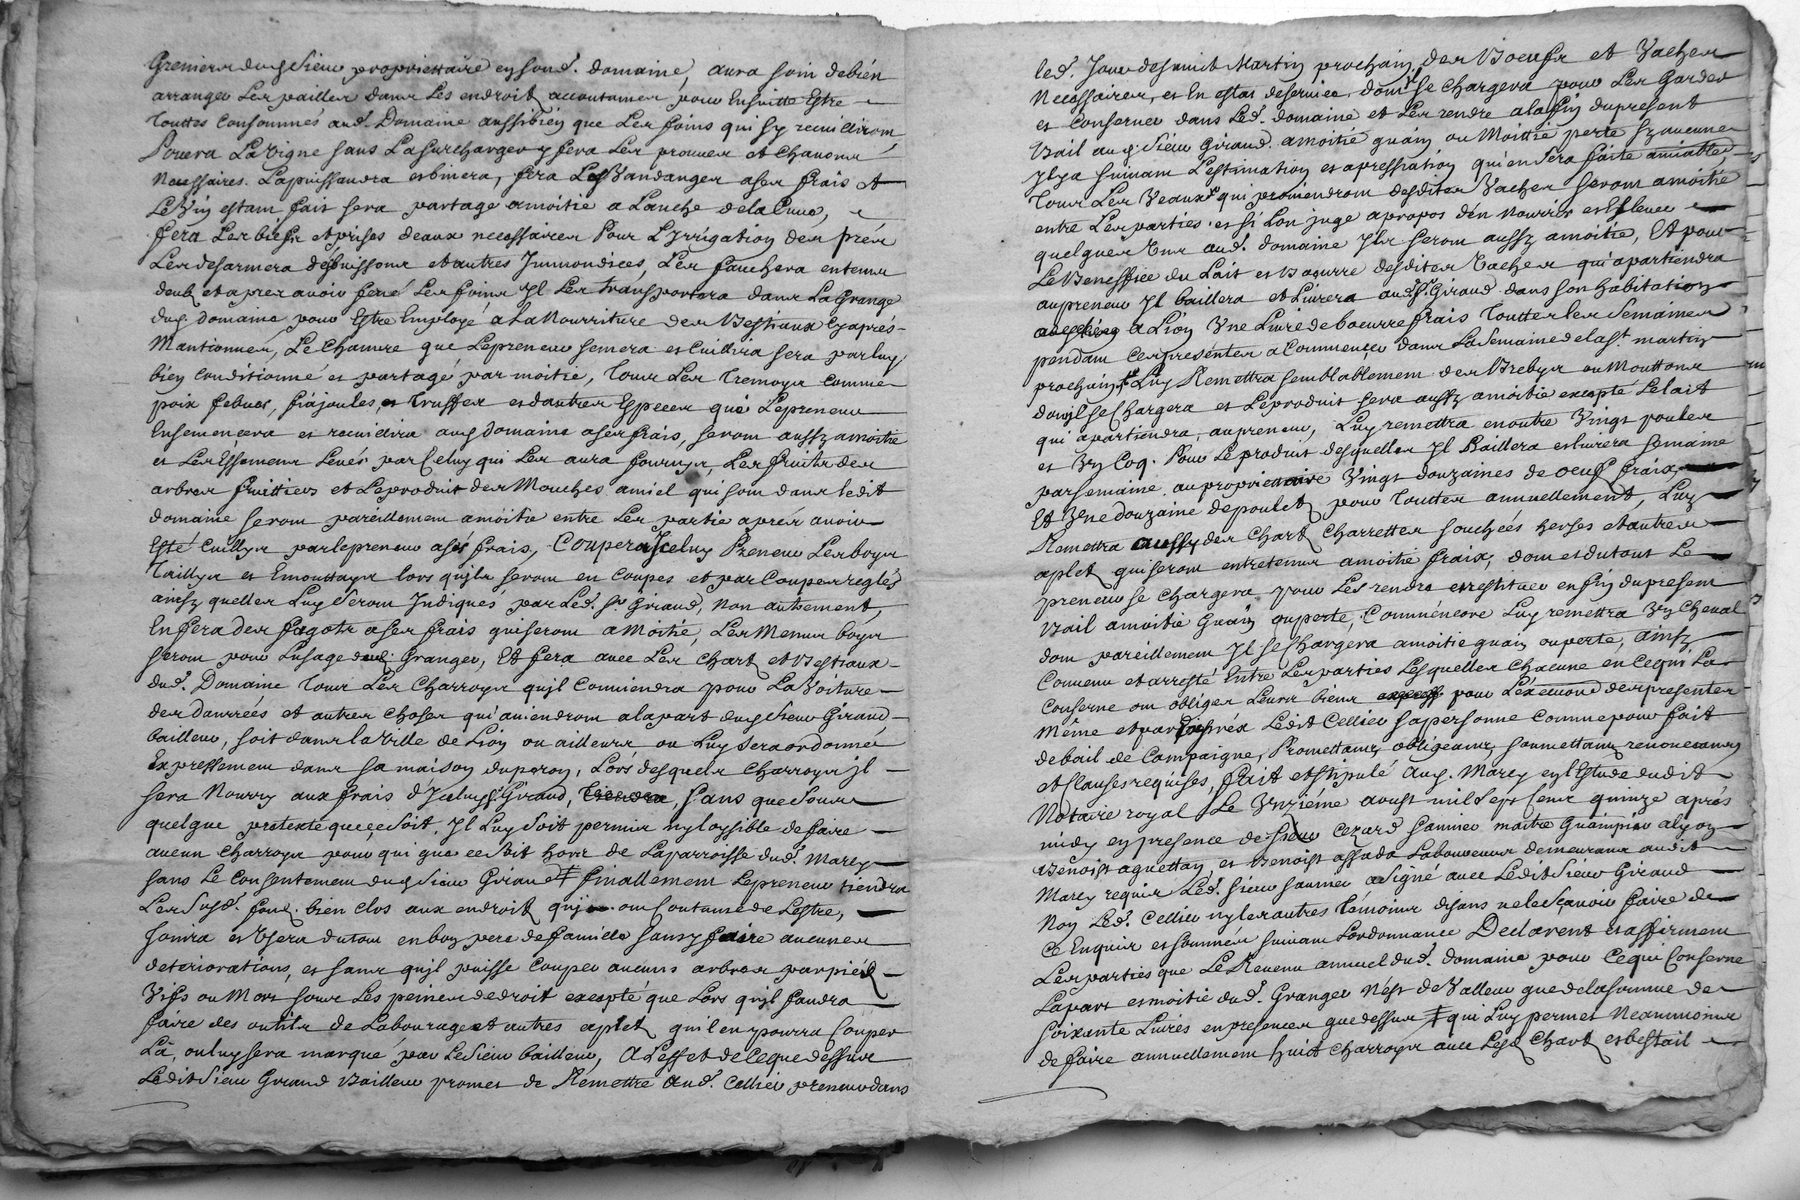 Greniers dud Sieur propriettaire en sond. domaine, aura soin de bien
arranger Les pailles dans Les endroit accoutumes pour Ensuitte Estre
touttes Consommes aud. Domaine aussi bien que Les foins qui sy recuilliront
La vigne sans La surcharger y fera Les proues et Chavons
Necessaires. La puissandra et binera, fera Les Vandanges a ses frais et
Le Vin estant fait sera partagé a moitié a L'anche de la Cuve,
fera Les biefs et prises deaux necessaires Pour L'Irrigation des prés
Les desarmera de buissons et autres Immondices, Les fauchera en temps
deub et apres avoir fené Les foins Il Les transportera dans La Grange
dud domaine pour Estre Employé a La Nourriture des Bestiaux Cy aprés
Mantionnes, Le Chanvre que Le preneur semera et Cuillira sera par luy
bien Conditionné et partagé par moitié, Tous Les Tremoys Comme
poix febves, fiajoules, et Truffes et dautres Especes que Le preneur
Ensemencera et recuillira aud domaine a ses frais, seront aussy a moitié
et Les Essemens Levés par Celuy qui Les aura fournys, Les fruits des
arbres fruittiers et Le produit des Mouches a miel qui sont dans ledit
domaine seront pareillement a moitié entre Les partie aprés avoir
Esté Cuillys par le preneur a ses frais, Coupera Iceluy Preneur Les boys
Taillys et Emouttays lors quils seront en Coupes et par Coupes reglés
ainsy quelles Luy seront Indiqués par Led. sr Giraud, Non autrement,
En fera des fagots a ses frais qui seront a Moitié, Les Menus boys
seront pour Lusage dud. Granger, Et fera avec Les Chart et Bestiaux
dud. Domaine tous Les Charroys quil Conviendra pour La Voiture
des danrées et autres Choses qui aviendront a la part dud Sieur Giraud
bailleur, soit dans la Ville de Lion ou ailleurs, ou Luy sera ordonné
Expressement dans sa maison du peron, Lors desquels Charroys Il
sera Nourry aux frais d'Iceluy sr Giraud, sans que sous
quelque pretexte que ce soit, Il Luy soit permis ny loysible de faire
aucun Charroys pour qui que ce soit hors de La parroisse dud. Marcy
sans Le Consentement dud Sieur Giraud ŧ finallement Le preneur tiendra
Les susd. fond. bien Clos aux endroit quils ont Coutume de L'estre,
Jouira et Usera du tout en bon pere de famille sans y faire aucunes
deteriorations, et sans quil puisse Couper aucuns arbres par pied
Vifs ou Mors sous Les peines de droit excepté que Lors quil faudra
faire des outils de Labourage et autres aplet, quil en pourra Couper
Là, ou luy sera marqué par Le Sieur bailleur, A L'effet de Ce que dessus
Ledit Sieur Giraud Bailleur promet de Remettre aud. Cellier preneur dans
led. Jour de saint Martin prochain des Boeufs et Vaches
Necessaires, et En estat de service, dont Il se Chargera pour Les Garder
et Conserver dans Led. domaine et Les rendre a la fin du present
Bail aud. Sieur Giraud a moitié guain ou Moittié perte sy aucune
Il y a suivant L'estimation et apressiation qui en sera faite amiablt.
Tous Les Veaux qui proviendront desdites Vaches seront a moitié
entre Les parties et si Lon juge a propos d'en Nourrir et Eslever
quelques Uns aud. domaine Ils seront aussy a moitié, Et pour
Le Beneffice du Lait et Beurre desdites Vaches qui apartiendra
au preneur Il baillera et Livrera aud. Sr. Giraud dans son habitation
a Lion Une Livre de beurre frais Touttes les Semaines
pendant Ces presentes a Commencer dans La Semaine de la st. martin
prochain, Luy Remettra semblablement des Brebys ou Mouttons
dont Il se Chargera et Le produit sera aussy a moitié excepté Le lait
qui apartiendra, au preneur, Luy remettra en outre Vingt poules
et Un Coq. Pour Le produit desquelles Il Baillera et Livrera semaine
par semaine au propriettaire Vingt douzaines de oeufs fraix
Et Une douzaine de poulet, pour Touttes annuellement, Luy
Remettra aussy des Chart, Charrettes souchées herses et autres
aplet, qui seront entretenus a moitié fraix, dont et du tout Le
preneur se Chargera pour Les rendre et restituer en fin du present
Bail a moitié Guain ou perte, Comme encore Luy remettra Un Cheval
dont pareillement Il se Chargera a moitié guain ou perte, ainsy
Convenu et arresté Entre Les parties Lesquelles Chacune en Ce qui La
Conserne ont obligés Leurs biens pour L'exécution des presentes
Même et par Exprés Ledit Cellier sa personne Comme pour fait
de bail de Campagne, Promettant, obligeant, soumettant, renonceant
et Clauses requises, fait et stipulé aud. Marcy en l'Estude dudit
Notaire royal Le Unziéme aoust mil sept Cent quinze aprés
midy en presence de sieur Cezard Saunier maitre Guainpier a Lyon
Benoist aguettan et Benoist assada Laboureurs demeurans audit
Marcy requis Led. Sieur Saunier a signé avec Ledit Sieur Giraud
Non Led. Cellier ny les autres Témoins disans ne le sçavoir faire de
Ce Enquis et sommés suivant Lordonnance Declarent et affirment
Les parties que Le Revenu annuel dud. domaine pour Ce qui Conserne
La part et moitié dud. Granger N'est de Valleur que de la somme de
soixante Livres en presences que dessus ŧ qui Luy permet Neammoins
de faire annuellement huit Charroys avec Lesd Chart, et bestail